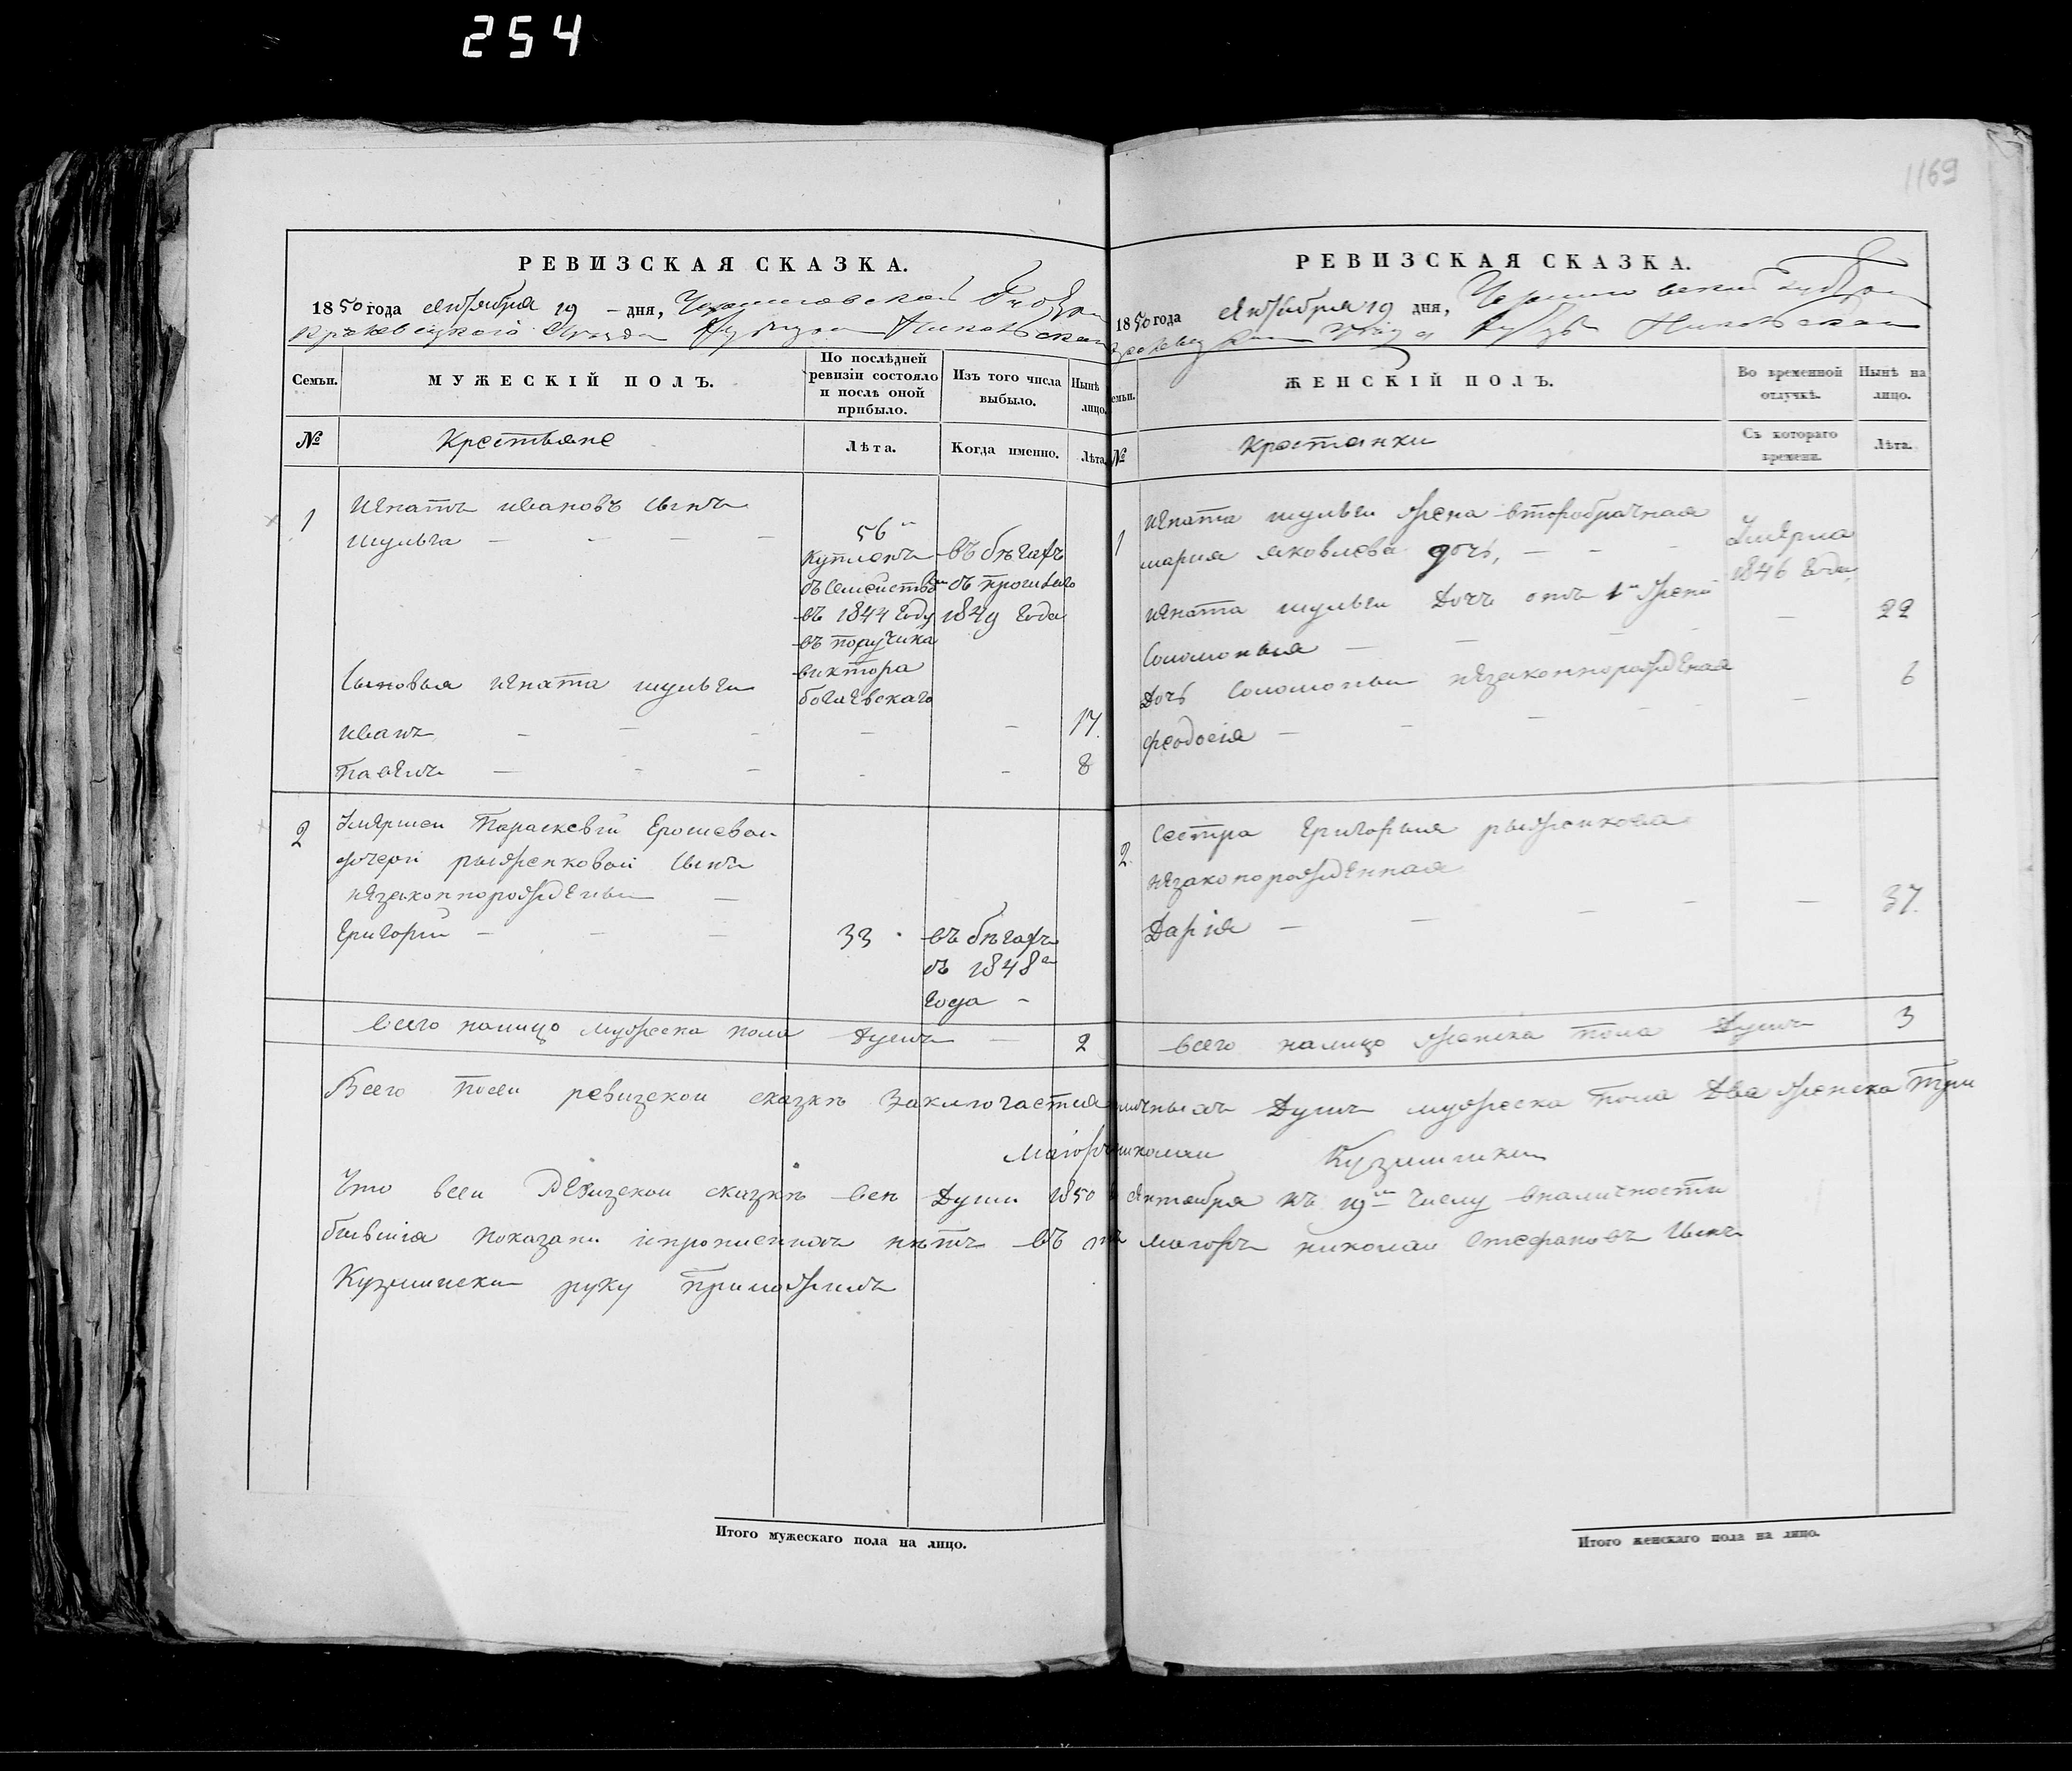 254
1169
РЕВИЗСКАЯ СКАЗКА.
1850 года октября 19 - дня, Черниговской Губер
Кролевецкого
МУЖЕСКІЙ ПОЛЪ.
Семьи.
По послѣдней ревизіи состояло и послѣ оной прибыло.
Изъ того числа выбыло.
Нынѣ лицо.
№
Крестьяне
Лѣта.
Когда именно.
Лѣта.
1
Игнатъ ивановъ сынъ
шульга
56
купленъ
въ 1844 году
въ поручика
виктора
богаевскаго
въ бѣгахъ
съ прошлаго
1849 года
Сыновья игната шульги
иванъ
17.
павелъ
8
2
Умершей Параскевіи Ерошевой
дочери рыженковой сынъ
незаконнорожденный
Григорій
33
въ бѣгахъ
съ 1848
года
всего налицо мужеска пола душъ
2
РЕВИЗСКАЯ СКАЗКА.
1850 года октября 19 дня, Черниговской
ЖЕНСКІЙ ПОЛЪ.
Во временной отлучкѣ.
Нынѣ на лицо.
№
Крестянки
Съ котораго времени.
Лѣта.
1
игната шульги жена второбрачная
мария яковлева дочь,
Умерла
1846 года
игната шульги Дочь отъ 1й жены
Соломонья
22
Дочь Соломоньи незаконнорожденая
феодосія
6
2.
Сестра григорья рыженкова
незаконорожденная
Дарія
37.
всего налицо женска пола Душъ
3
Всего по сеи ревизской сказкѣ заключается наличныхъ Душъ мужеска пола Два женска три
маіоръ николаи Кузмински
Что в сеи Ревизской сказкѣ всѣ Души 1850 октября къ 19 числу вналичности
бывшіа показаны ипрописныхъ нѣтъ въ маіоръ николаи Стефановъ сынъ
Кузмински руку приложилъ
Итого мужескаго пола на лицо.
Итого женскаго пола на лицо.